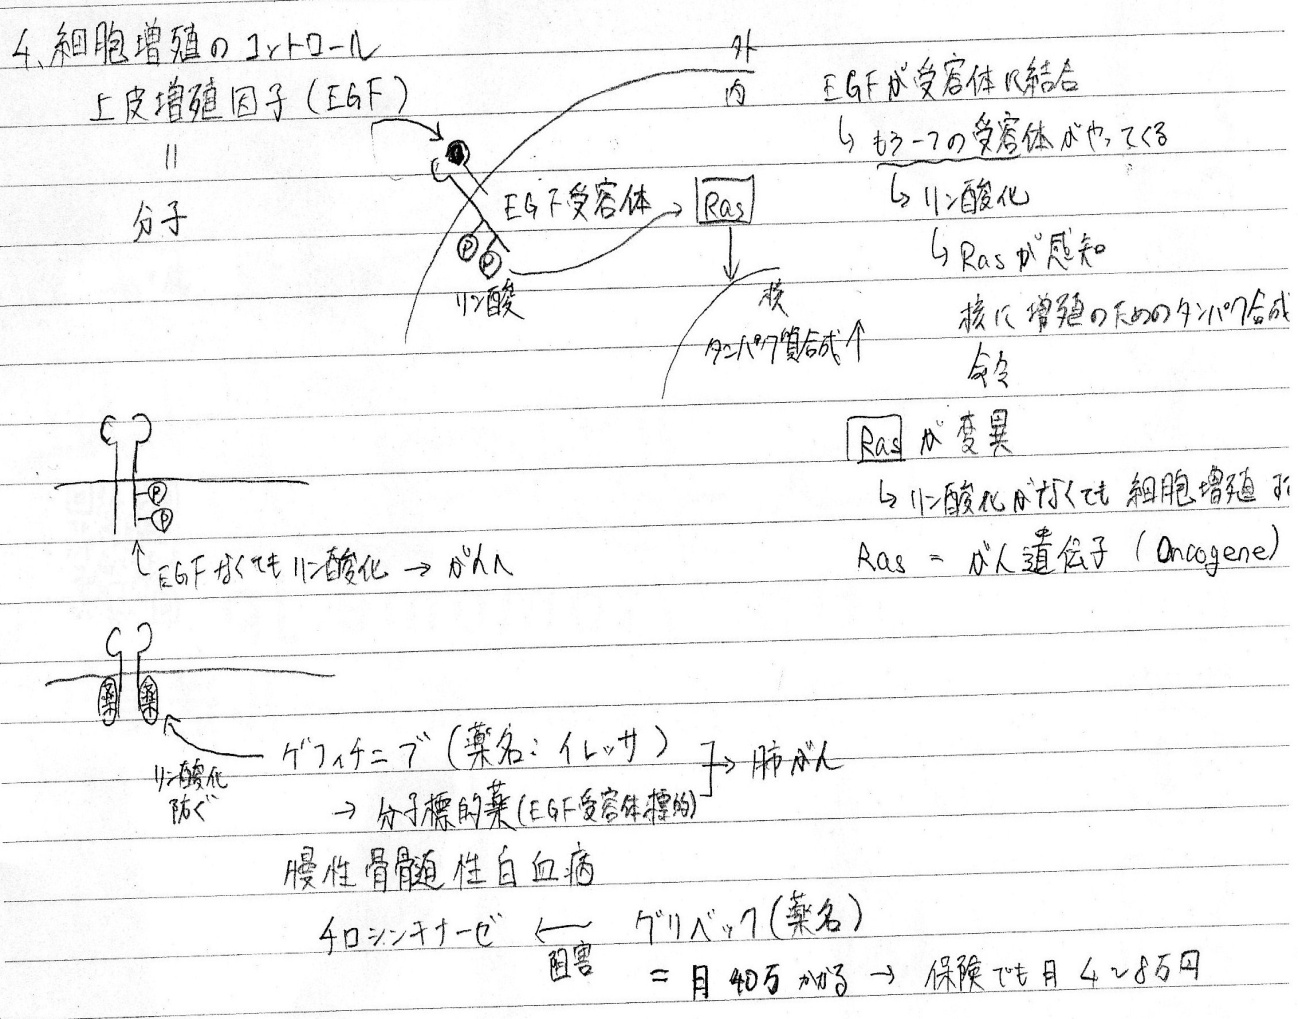 4、細胞増殖のコントロール
上皮増殖因子(EGF)
=
分子
外
内
EGF受容体
Ras
P
P
リン酸
核
タンパク質合成↑
EGFが受容体に結合
↳ もう一つの受容体がやってくる
↳ リン酸化
↳ Rasが感知
核に増殖のためのタンパク合成
命令
Ras が変異
↳ リン酸化がなくても細胞増殖
Ras = がん遺伝子 (Oncogene)
P
P
EGFなくてもリン酸化 → がん
薬 薬
リン酸化
防ぐ
ゲフィチニブ (薬名: イレッサ)
→ 分子標的薬(EGF受容体標的)
→ 肺がん
慢性骨髄性白血病
チロシンキナーゼ ← グリベック(薬名)
阻害
= 月40万かかる → 保険でも月4~8万円